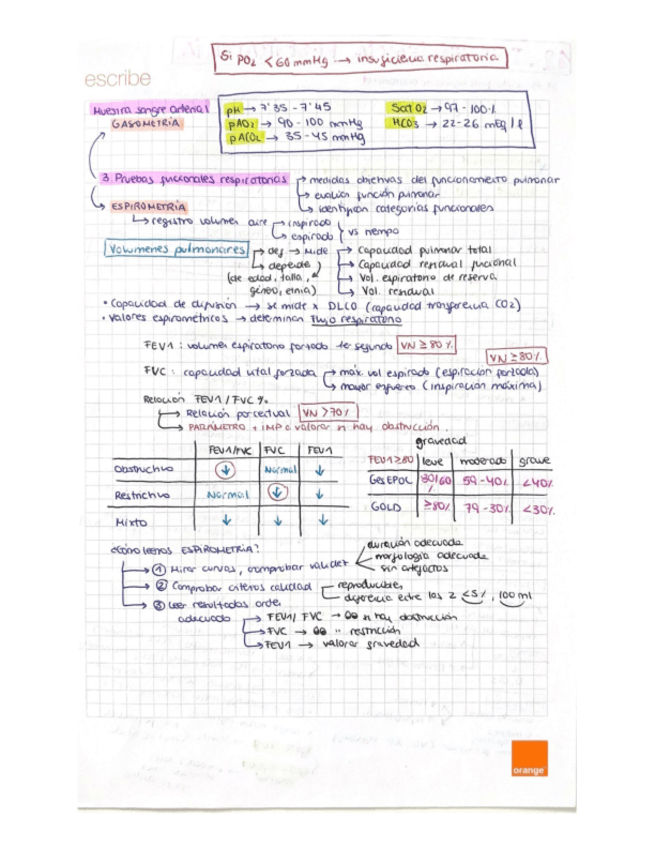 Si PO2 < 60 mmHg → insuficiencia respiratoria
escribe
Muestra sangre arterial
GASOMETRÍA
pH → 7'35 - 7'45
pAO2 → 90 - 100 mmHg
pACO2 → 35 - 45 mmHg
Sat O2 → 97 - 100%
HCO3 → 22-26 mEq/l
3. Pruebas funcionales respiratorias → medidas objetivas del funcionamiento pulmonar
→ evalúan función pulmonar
→ identifican categorías funcionales
→ ESPIROMETRÍA
→ registro volumen aire → inspirado
→ espirado } vs tiempo
Volúmenes pulmonares → def → Mide → Capacidad pulmonar total
→ depende → Capacidad residual funcional
(de edad, talla, → Vol. espiratorio de reserva
género, etnia) → Vol. residual
• Capacidad de difusión → se mide x DLCO (capacidad transferencia CO2)
• Valores espirométricos → determinan flujo respiratorio
FEV1 : volumen espiratorio forzado 1er segundo VN ≥ 80%
VN ≥ 80%
FVC : capacidad vital forzada → máx. vol espirado (espiración forzada)
→ mayor esfuerzo (inspiración máxima)
Relación FEV1 / FVC %
→ Relación porcentual VN > 70%
→ PARÁMETRO + IMP a valorar si hay obstrucción.
FEV1/FVC FVC FEV1
Obstructivo ↓ Normal ↓
Restrictivo Normal ↓ ↓
Mixto ↓ ↓ ↓
gravedad
FEV1≥80 leve moderado grave
GesEPOC 80/60% 59-40% <40%
GOLD ≥80% 79-30% <30%
¿Cómo leemos ESPIROMETRÍA?
→ ① Mirar curvas, comprobar validez
duración adecuada
morfología adecuada
sin artefactos
→ ② Comprobar criterios calidad
reproducibles
diferencia entre las 2 ≤5%, 100 ml
→ ③ Leer resultados orden
adecuado → FEV1/ FVC → si hay obstrucción
→ FVC → " restricción
→ FEV1 → valorar gravedad
orange